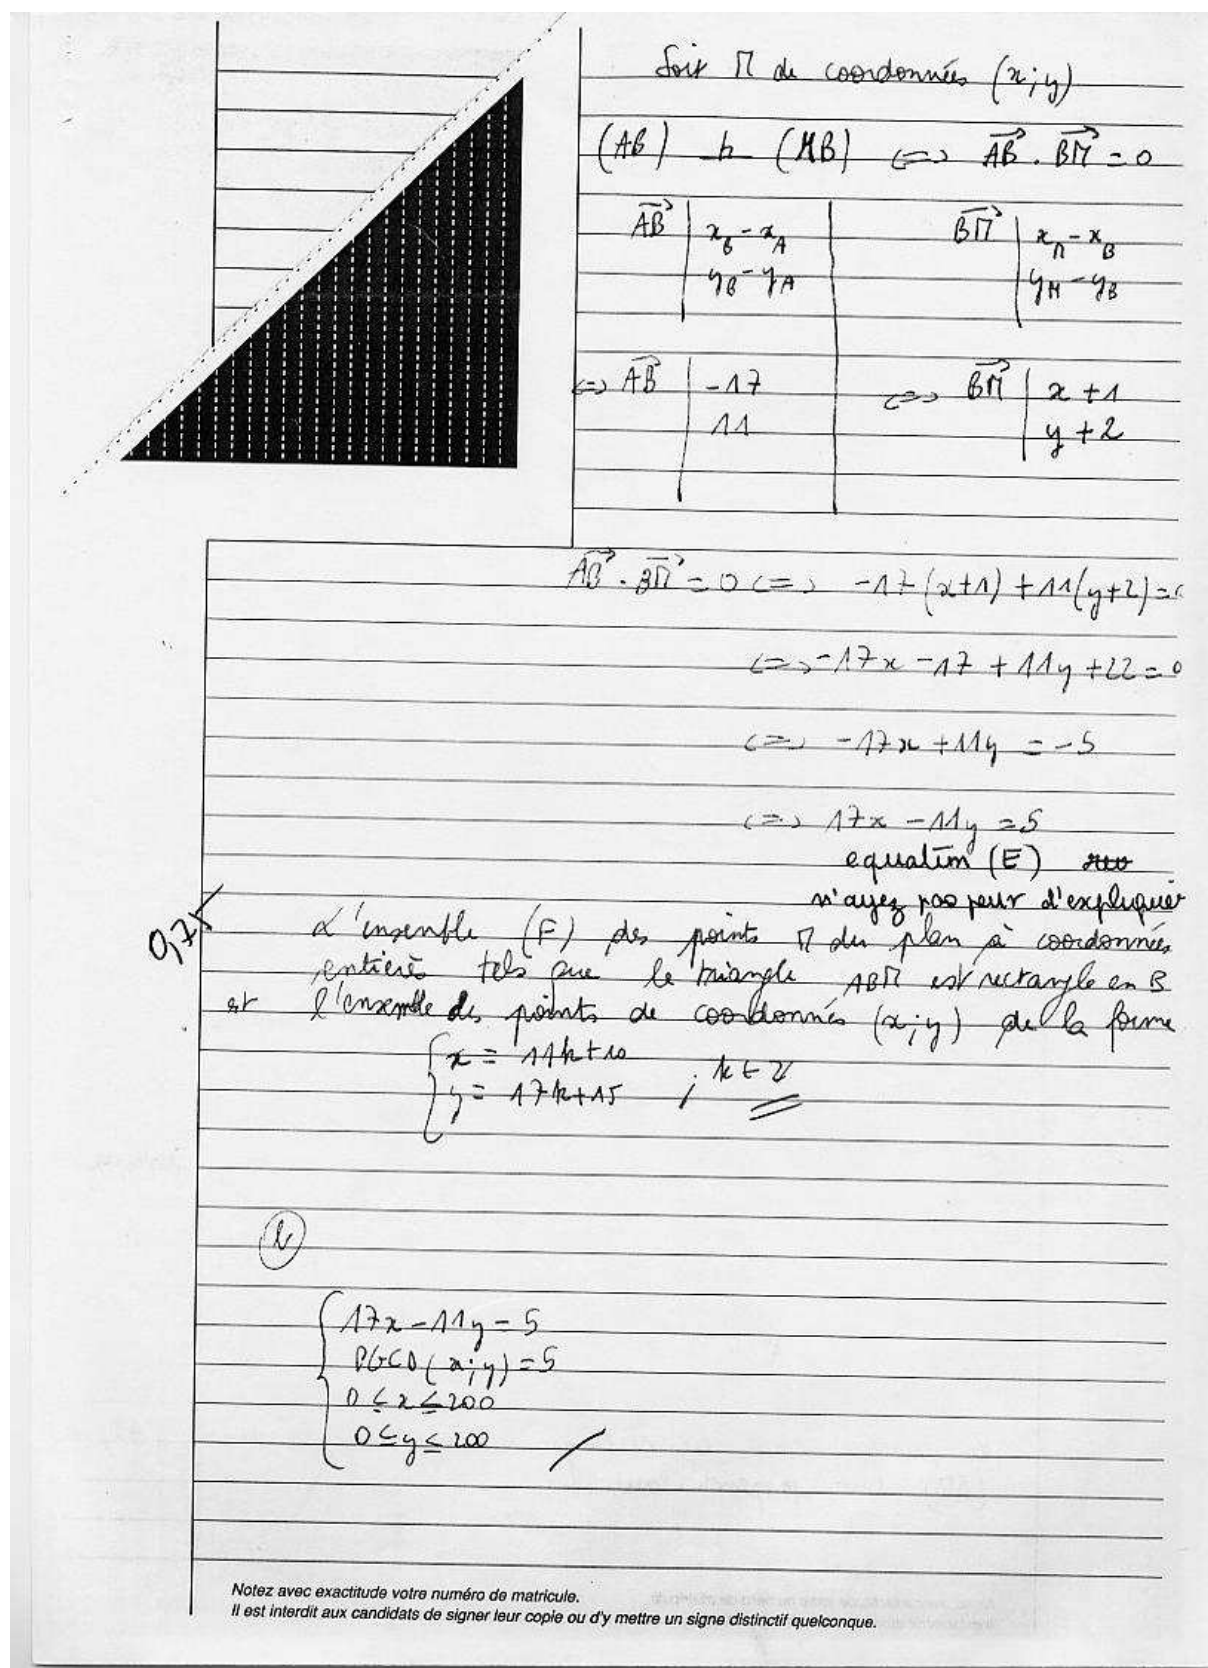 Soit M de coordonnées (x;y)
(AB) ⊥ (MB) <=> AB⃗ . BM⃗ = 0
AB⃗ | x_B - x_A | BM⃗ | x_M - x_B
y_B - y_A | y_M - y_B
<=> AB⃗ | -17 | <=> BM⃗ | x + 1
11 | y + 2
AB⃗ . BM⃗ = 0 <=> -17(x+1) + 11(y+2) = 0
<=> -17x - 17 + 11y + 22 = 0
<=> -17x + 11y = -5
<=> 17x - 11y = 5
equation (E)
n'ayez pas peur d'expliquer
0,75
L'ensemble (F) des points M du plan à coordonnées
entières tels que le triangle ABM est rectangle en B
est l'ensemble des points de coordonnées (x;y) de la forme
{ x = 11k+10
{ y = 17k+15 ; k ∈ Z
b
{ 17x - 11y = 5
PGCD(x;y) = 5
0 ≤ x ≤ 200
0 ≤ y ≤ 200
Notez avec exactitude votre numéro de matricule.
Il est interdit aux candidats de signer leur copie ou d'y mettre un signe distinctif quelconque.